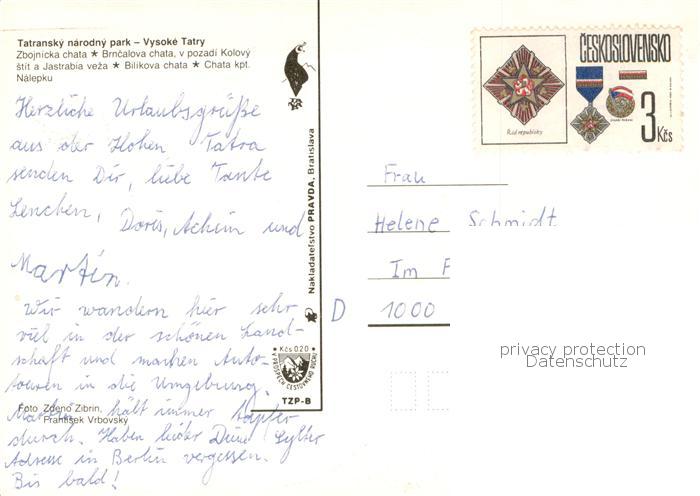 Tatranský národný park – Vysoké Tatry
Zbojnícka chata ★ Brnčalova chata, v pozadí Kolový
štít a Jastrabia veža ★ Bilíkova chata ★ Chata kpt.
Nálepku
Herzliche Urlaubsgrüße
aus der Hohen Tatra
senden Dir, liebe Tante
Lenchen, Doris, Achim und
Martin.
Wir wandern hier sehr
viel in der schönen Land-
schaft und machen Auto-
touren in die Umgebung.
Martin hält immer tapfer
durch. Haben leider Deine Sylter
Adresse in Berlin vergessen.
Bis bald!
Foto Zdeno Zibrín,
František Vrbovský
Nakladateľstvo PRAVDA, Bratislava
Kčs 0.20
V PROSPECH CESTOVNÉHO RUCHU
TZP-B
ČESKOSLOVENSKO
Řád republiky
3 Kčs
Frau
Helene Schmidt
Im
D 1000
privacy protection
Datenschutz